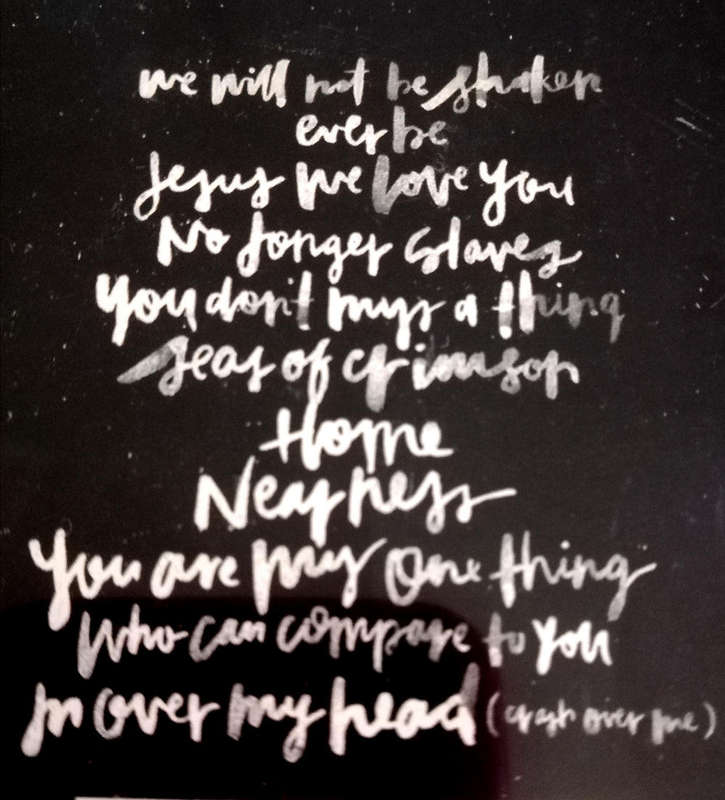 we will not be shaken
ever be
Jesus we love you
No longer slaves
You don't miss a thing
seas of crimson
Home
Nearness
You are my one thing
Who can compare to you
In over my head (crash over me)